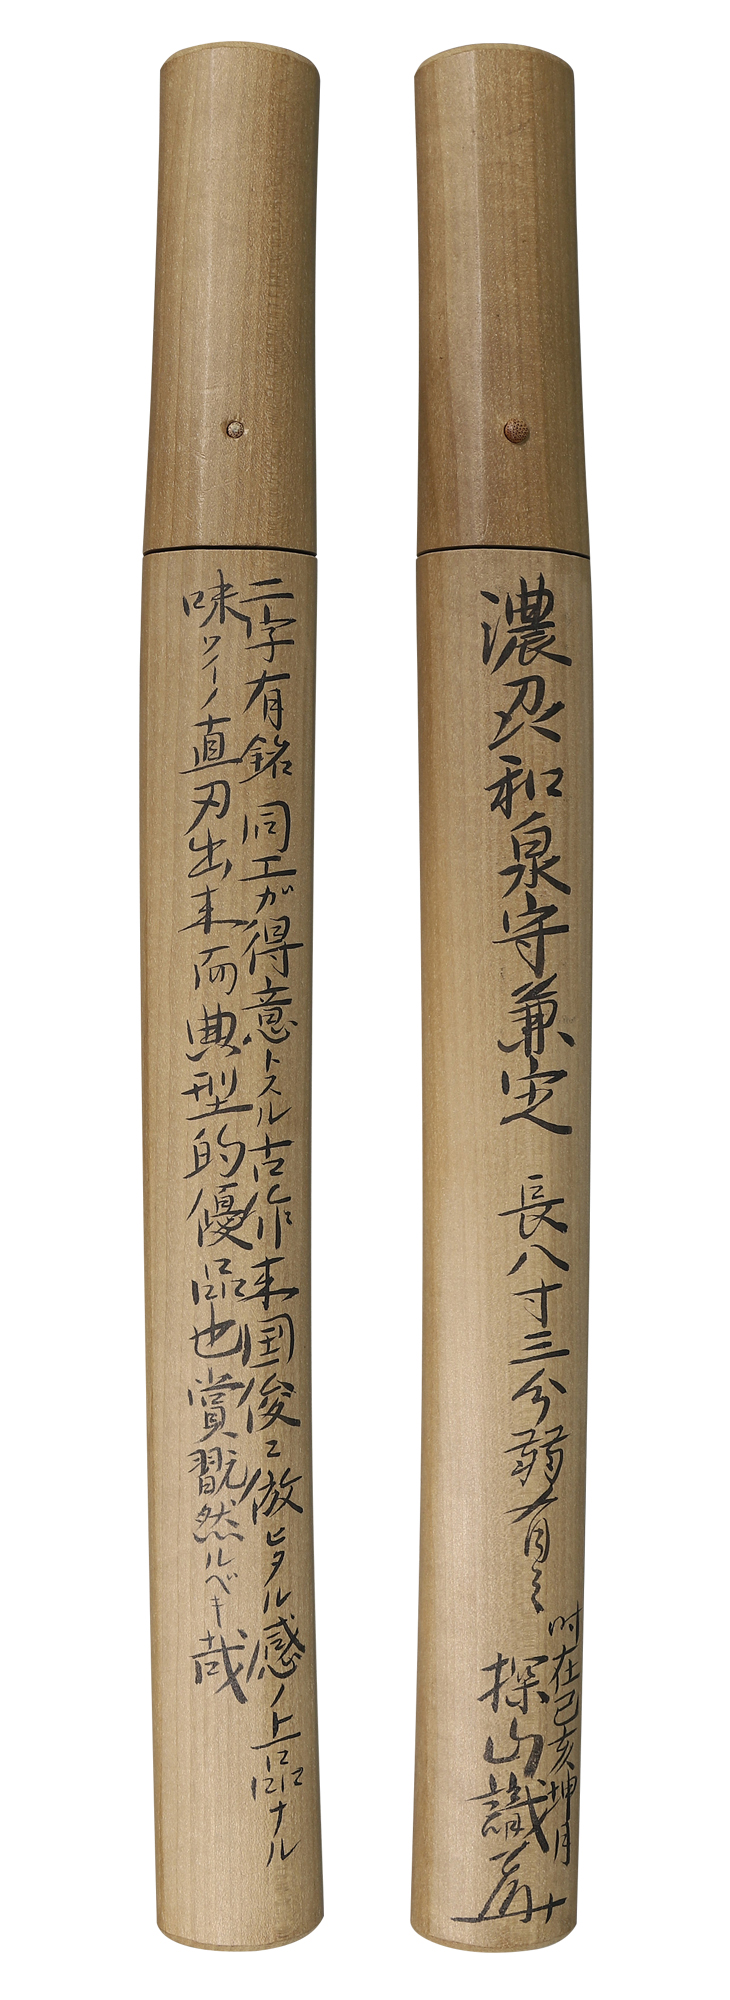 濃刕和泉守兼定 長八寸三分弱有之
时在己亥坤月
探山識
二字有銘 同工ガ得意トスル古作来国俊ニ倣ヒタル感ノ上品ナル
味ワイノ直刃出来而典型的優品也賞翫然ルベキ哉